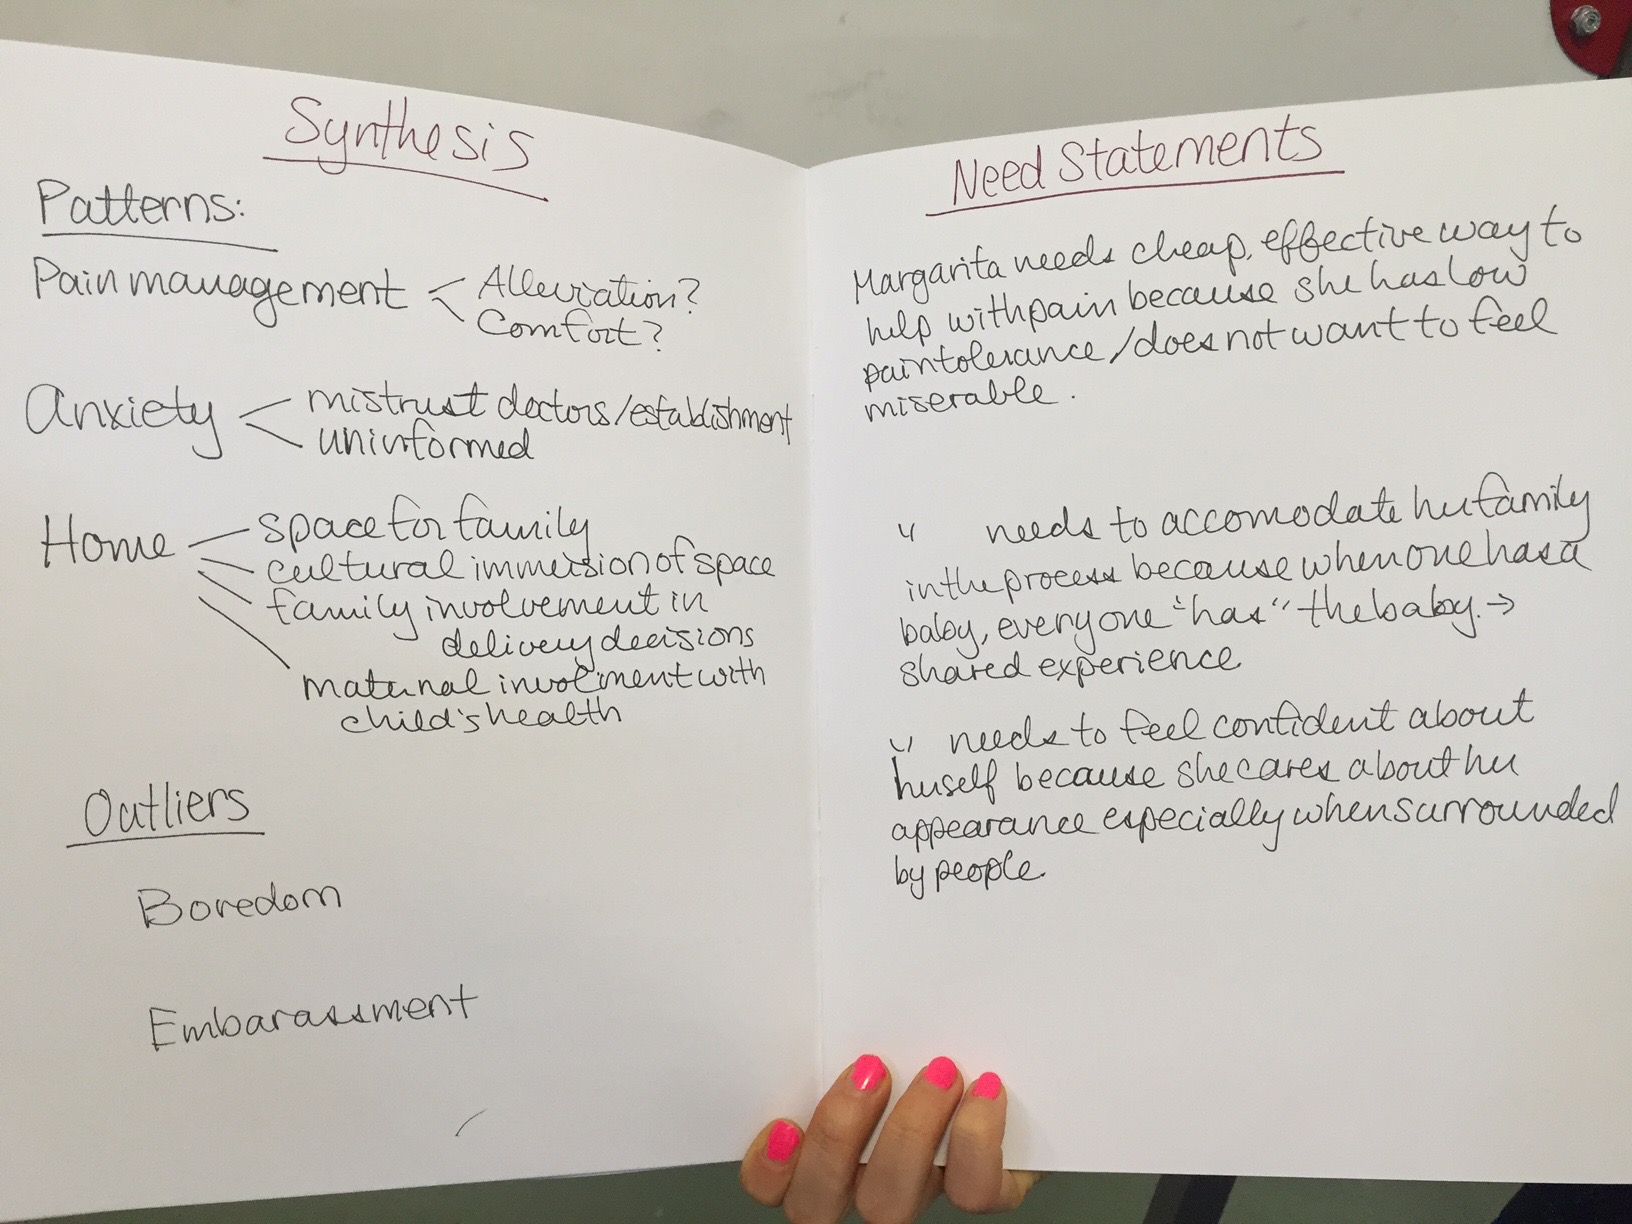 Synthesis
Patterns:
Pain management
Alleviation?
Comfort?
Anxiety
mistrust doctors/establishment
uninformed
Home
space for family
cultural immersion of space
family involvement in
delivery decisions
maternal involment with
child's health
Outliers
Boredom
Embarassment
Need Statements
Margarita needs cheap, effective way to
help with pain because she has low
pain tolerance/does not want to feel
miserable.
" needs to accomodate her family
in the process because when one has a
baby, everyone "has" the baby. →
shared experience
" needs to feel confident about
herself because she cares about her
appearance especially when surrounded
by people.